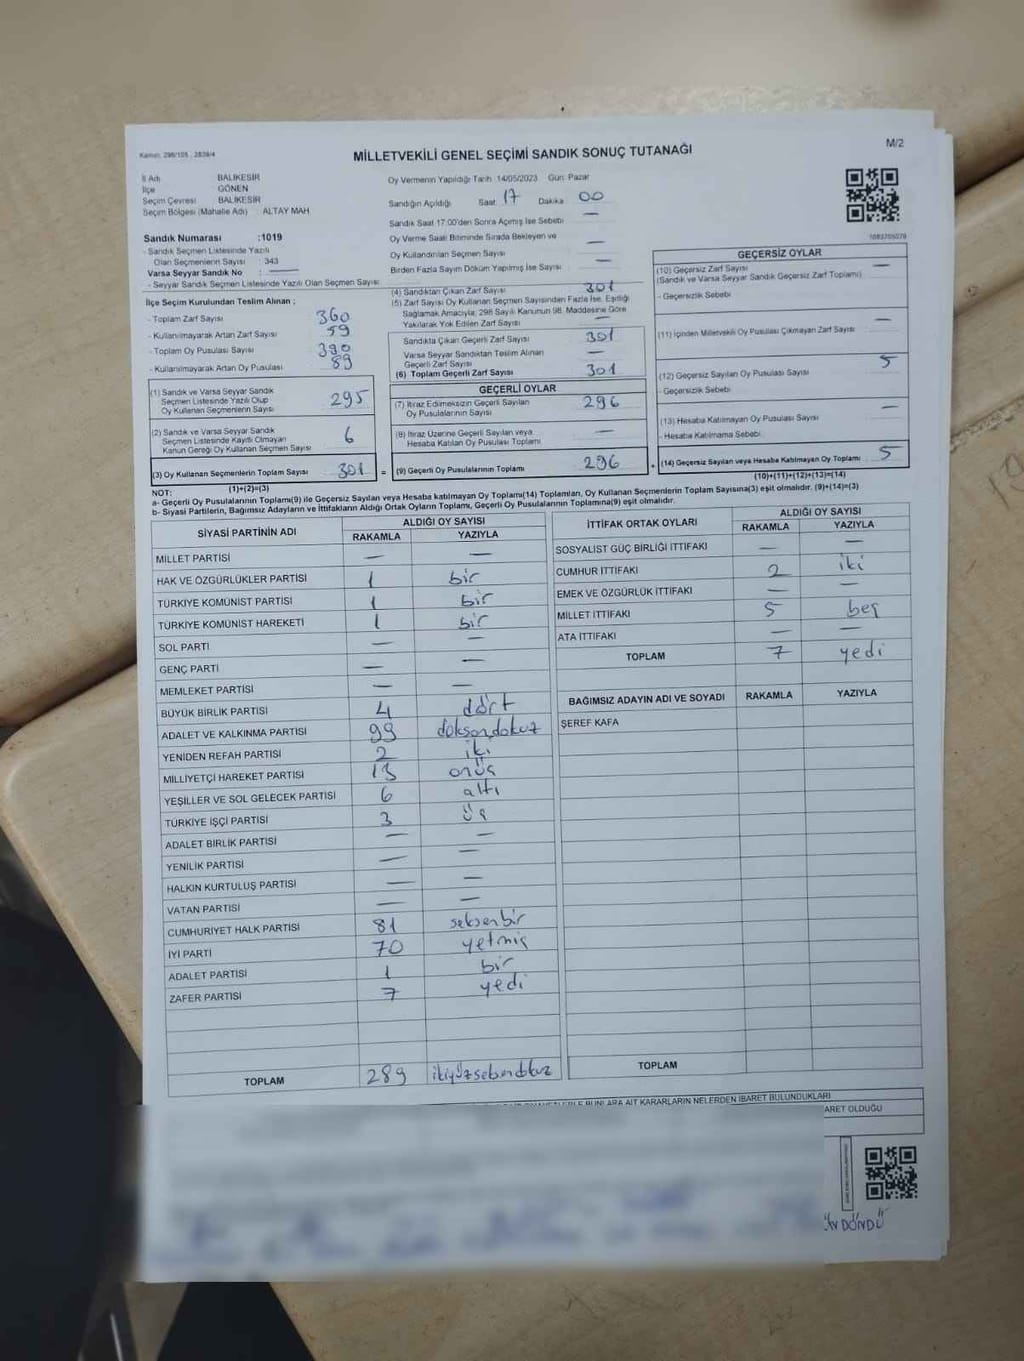 Kanun: 298/105 , 2839/4
MİLLETVEKİLİ GENEL SEÇİMİ SANDIK SONUÇ TUTANAĞI
M/2
İl Adı : BALIKESİR
İlçe : GÖNEN
Seçim Çevresi : BALIKESİR
Seçim Bölgesi (Mahalle Adı) : ALTAY MAH
Sandık Numarası :1019
- Sandık Seçmen Listesinde Yazılı
Olan Seçmenlerin Sayısı : 343
Varsa Seyyar Sandık No : —
- Seyyar Seçmen Listesinde Yazılı Olan Seçmen Sayısı:
İlçe Seçim Kurulundan Teslim Alınan ;
- Toplam Zarf Sayısı 360
- Kullanılmayarak Artan Zarf Sayısı 59
- Toplam Oy Pusulası Sayısı 390
- Kullanılmayarak Artan Oy Pusulası 89
(1) Sandık ve Varsa Seyyar Sandık
Seçmen Listesinde Yazılı Olup
Oy Kullanan Seçmenlerin Sayısı 295
(2) Sandık ve Varsa Seyyar Sandık
Seçmen Listesinde Kayıtlı Olmayan
Kanun Gereği Oy Kullanan Seçmen Sayısı 6
(3) Oy Kullanan Seçmenlerin Toplam Sayısı 301 =
(1)+(2)=(3)
Oy Vermenin Yapıldığı Tarih 14/05/2023 Gün: Pazar
Sandığın Açıldığı Saat 17 Dakika 00
Sandık Saat 17:00'den Sonra Açılmış İse Sebebi —
Oy Verme Saati Bitiminde Sırada Bekleyen ve
Oy Kullandırılan Seçmen Sayısı —
Birden Fazla Sayım Döküm Yapılmış İse Sayısı —
(4) Sandıktan Çıkan Zarf Sayısı 301
(5) Zarf Sayısı Oy Kullanan Seçmen Sayısından Fazla İse, Eşitliği
Sağlamak Amacıyla, 298 Sayılı Kanunun 98. Maddesine Göre
Yakılarak Yok Edilen Zarf Sayısı —
Sandıkta Çıkan Geçerli Zarf Sayısı 301
Varsa Seyyar Sandıktan Teslim Alınan
Geçerli Zarf Sayısı —
(6) Toplam Geçerli Zarf Sayısı 301
GEÇERLİ OYLAR
(7) İtiraz Edilmeksizin Geçerli Sayılan
Oy Pusulalarının Sayısı 296
(8) İtiraz Üzerine Geçerli Sayılan veya
Hesaba Katılan Oy Pusulası Toplamı —
(9) Geçerli Oy Pusulalarının Toplamı 296 +
GEÇERSİZ OYLAR
(10) Geçersiz Zarf Sayısı —
(Sandık ve Varsa Seyyar Sandık Geçersiz Zarf Toplamı)
- Geçersizlik Sebebi
(11) İçinden Milletvekili Oy Pusulası Çıkmayan Zarf Sayısı —
(12) Geçersiz Sayılan Oy Pusulası Sayısı 5
- Geçersizlik Sebebi
(13) Hesaba Katılmayan Oy Pusulası Sayısı —
- Hesaba Katılmama Sebebi
(14) Geçersiz Sayılan veya Hesaba Katılmayan Oy Toplamı 5
(10)+(11)+(12)+(13)=(14)
NOT:
a- Geçerli Oy Pusulalarının Toplamı(9) ile Geçersiz Sayılan veya Hesaba katılmayan Oy Toplamı(14) Toplamları, Oy Kullanan Seçmenlerin Toplam Sayısına(3) eşit olmalıdır. (9)+(14)=(3)
b- Siyasi Partilerin, Bağımsız Adayların ve İttifakların Aldığı Ortak Oyların Toplamı, Geçerli Oy Pusulalarının Toplamına(9) eşit olmalıdır.
SİYASİ PARTİNİN ADI ALDIĞI OY SAYISI
RAKAMLA YAZIYLA
MİLLET PARTİSİ — —
HAK VE ÖZGÜRLÜKLER PARTİSİ 1 bir
TÜRKİYE KOMÜNİST PARTİSİ 1 bir
TÜRKİYE KOMÜNİST HAREKETİ 1 bir
SOL PARTİ — —
GENÇ PARTİ — —
MEMLEKET PARTİSİ — —
BÜYÜK BİRLİK PARTİSİ 4 dört
ADALET VE KALKINMA PARTİSİ 99 doksandokuz
YENİDEN REFAH PARTİSİ 2 iki
MİLLİYETÇİ HAREKET PARTİSİ 13 onüç
YEŞİLLER VE SOL GELECEK PARTİSİ 6 altı
TÜRKİYE İŞÇİ PARTİSİ 3 üç
ADALET BİRLİK PARTİSİ — —
YENİLİK PARTİSİ — —
HALKIN KURTULUŞ PARTİSİ — —
VATAN PARTİSİ — —
CUMHURİYET HALK PARTİSİ 81 seksenbir
İYİ PARTİ 70 yetmiş
ADALET PARTİSİ 1 bir
ZAFER PARTİSİ 7 yedi
TOPLAM 289 ikiyüzseksendokuz
İTTİFAK ORTAK OYLARI ALDIĞI OY SAYISI
RAKAMLA YAZIYLA
SOSYALİST GÜÇ BİRLİĞİ İTTİFAKI — —
CUMHUR İTTİFAKI 2 iki
EMEK VE ÖZGÜRLÜK İTTİFAKI — —
MİLLET İTTİFAKI 5 beş
ATA İTTİFAKI — —
TOPLAM 7 yedi
BAĞIMSIZ ADAYIN ADI VE SOYADI RAKAMLA YAZIYLA
ŞEREF KAFA
TOPLAM
BUNLARA AİT KARARLARIN NELERDEN İBARET BULUNDUKLARI
ARET OLDUĞU
DÖNDÜ